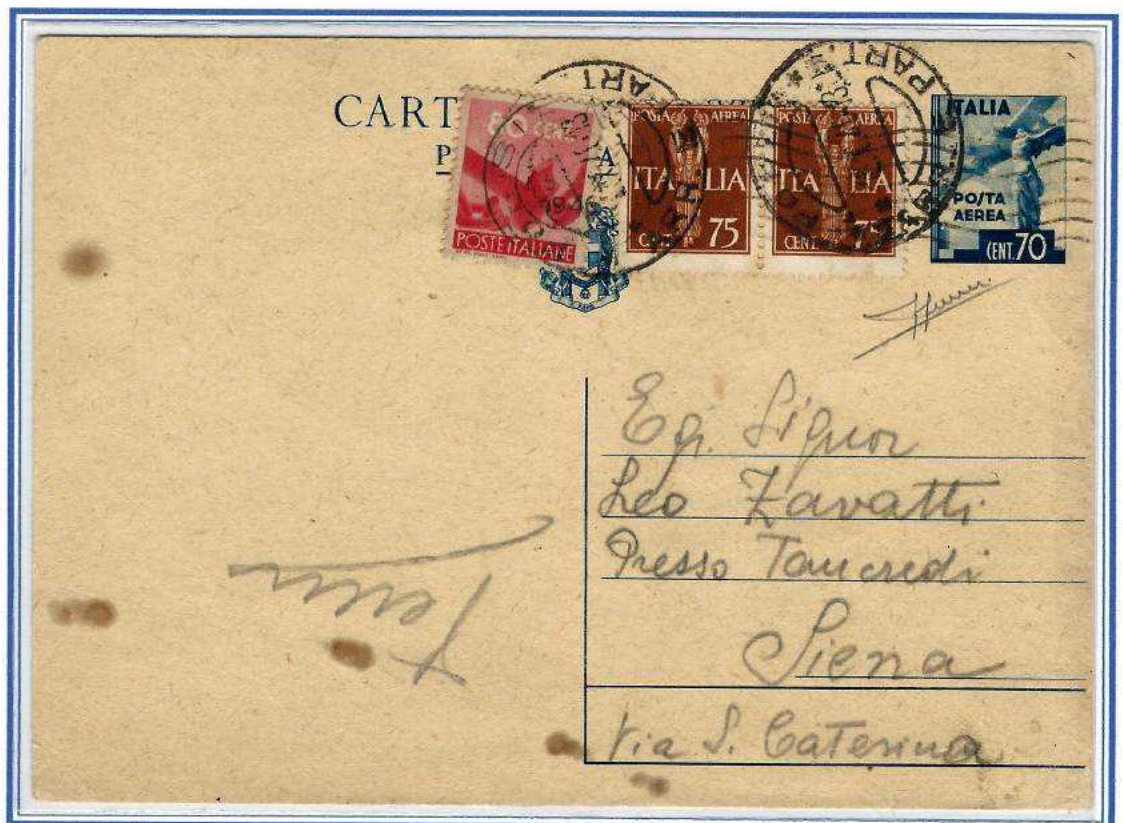 CART
P A
80 CENT.
POSTE ITALIANE
POSTA AEREA
ITALIA
75
POSTA AEREA
ITALIA
CENT. 75
ITALIA
POSTA
AEREA
CENT. 70
Eg. Signor
Leo Zavatti
Presso Tancredi
Siena
Via S. Caterina